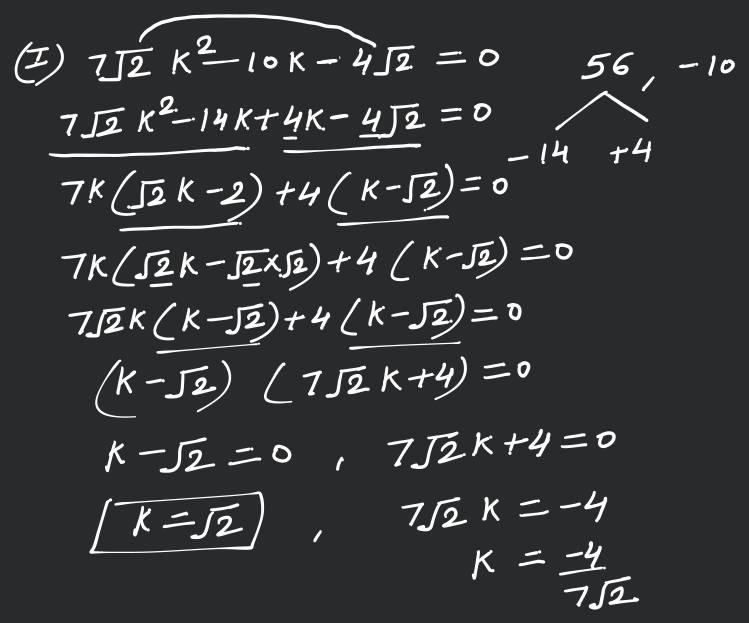 (I) 7√2 K² - 10K - 4√2 = 0
56, -10
7√2 K² - 14K + 4K - 4√2 = 0
-14 +4
7K(√2 K - 2) + 4(K - √2) = 0
7K(√2K - √2×√2) + 4(K - √2) = 0
7√2K(K - √2) + 4(K - √2) = 0
(K - √2) (7√2 K + 4) = 0
K - √2 = 0 , 7√2K + 4 = 0
K = √2 , 7√2 K = -4
K = -4/7√2